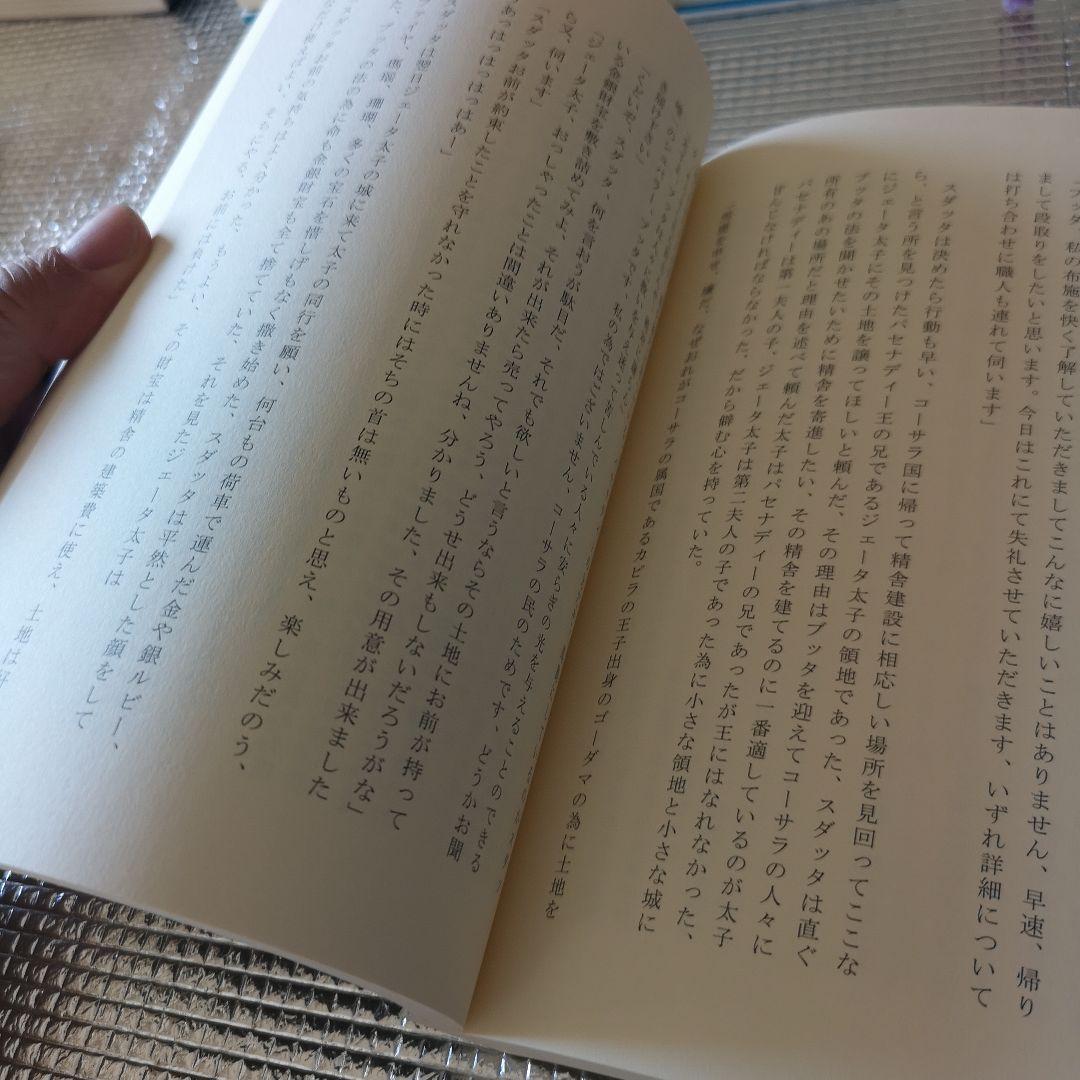 ブッダ、私の布施を快く了解していただきましてこんなに嬉しいことはありません、早速、帰り
まして段取りをしたいと思います。今日はこれにて失礼させていただきます、いずれ詳細について
は打ち合わせに職人も連れて伺います」
スダッタは決めたら行動も早い、コーサラ国に帰って精舎建設に相応しい場所を見回ってここな
ら、と言う所を見つけたパセナディー王の兄であるジェータ太子の領地であった、スダッタは直ぐ
にジェータ太子にその土地を譲ってほしいと頼んだ、その理由はブッタを迎えてコーサラの人々に
ブッタの法を聞かせたいために精舎を寄進したい、その精舎を建てるのに一番適しているのが太子
所有のあの場所だと理由を述べて頼んだ太子はパセナディーの兄であったが王にはなれなかった、
パセナディーは第一夫人の子、ジェータ太子は第二夫人の子であった為に小さな領地と小さな城に
甘んじなければならなかった。だから僻む心を持っていた。
嫌だ、なぜおれがコーサラの属国であるカピラの王子出身のゴーダマの為に土地を
私の為ではございません、コーサラの民のためです、どうかお聞
き届け下さい」
「くどいぞ、スダッタ、何を言おうが駄目だ、それでも欲しいと言うならその土地にお前が持って
いる金銀財宝を敷き詰めてみよ、それが出来たら売ってやろう、どうせ出来もしないだろうがな」
「ジェータ太子、おっしゃったことは間違いありませんね、分かりました、その用意が出来ました
ら又、伺います」
「スダッタお前が約束したことを守れなかった時にはそちの首は無いものと思え、楽しみだのう、
あっはっはっはっはあー」
スダッタは翌日ジェータ太子の城に来て太子の同行を願い、何台もの荷車で運んだ金や銀ルビー、
瑪瑙、珊瑚、多くの宝石を惜しげもなく撒き始めた、スダッタは平然とした顔をして
た、ブッタの法の為に命も金銀財宝も全て捨てていた、それを見たジェータ太子は
スダッタお前の気持ちはよく分かった、もうよい、お前には負けた」
その財宝は精舎の建築費に使え、土地は